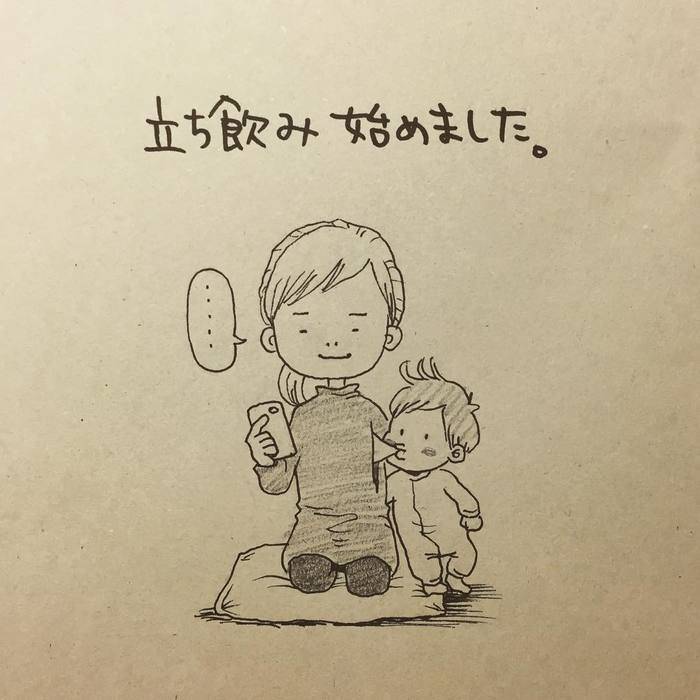 立ち飲み 始めました。
……